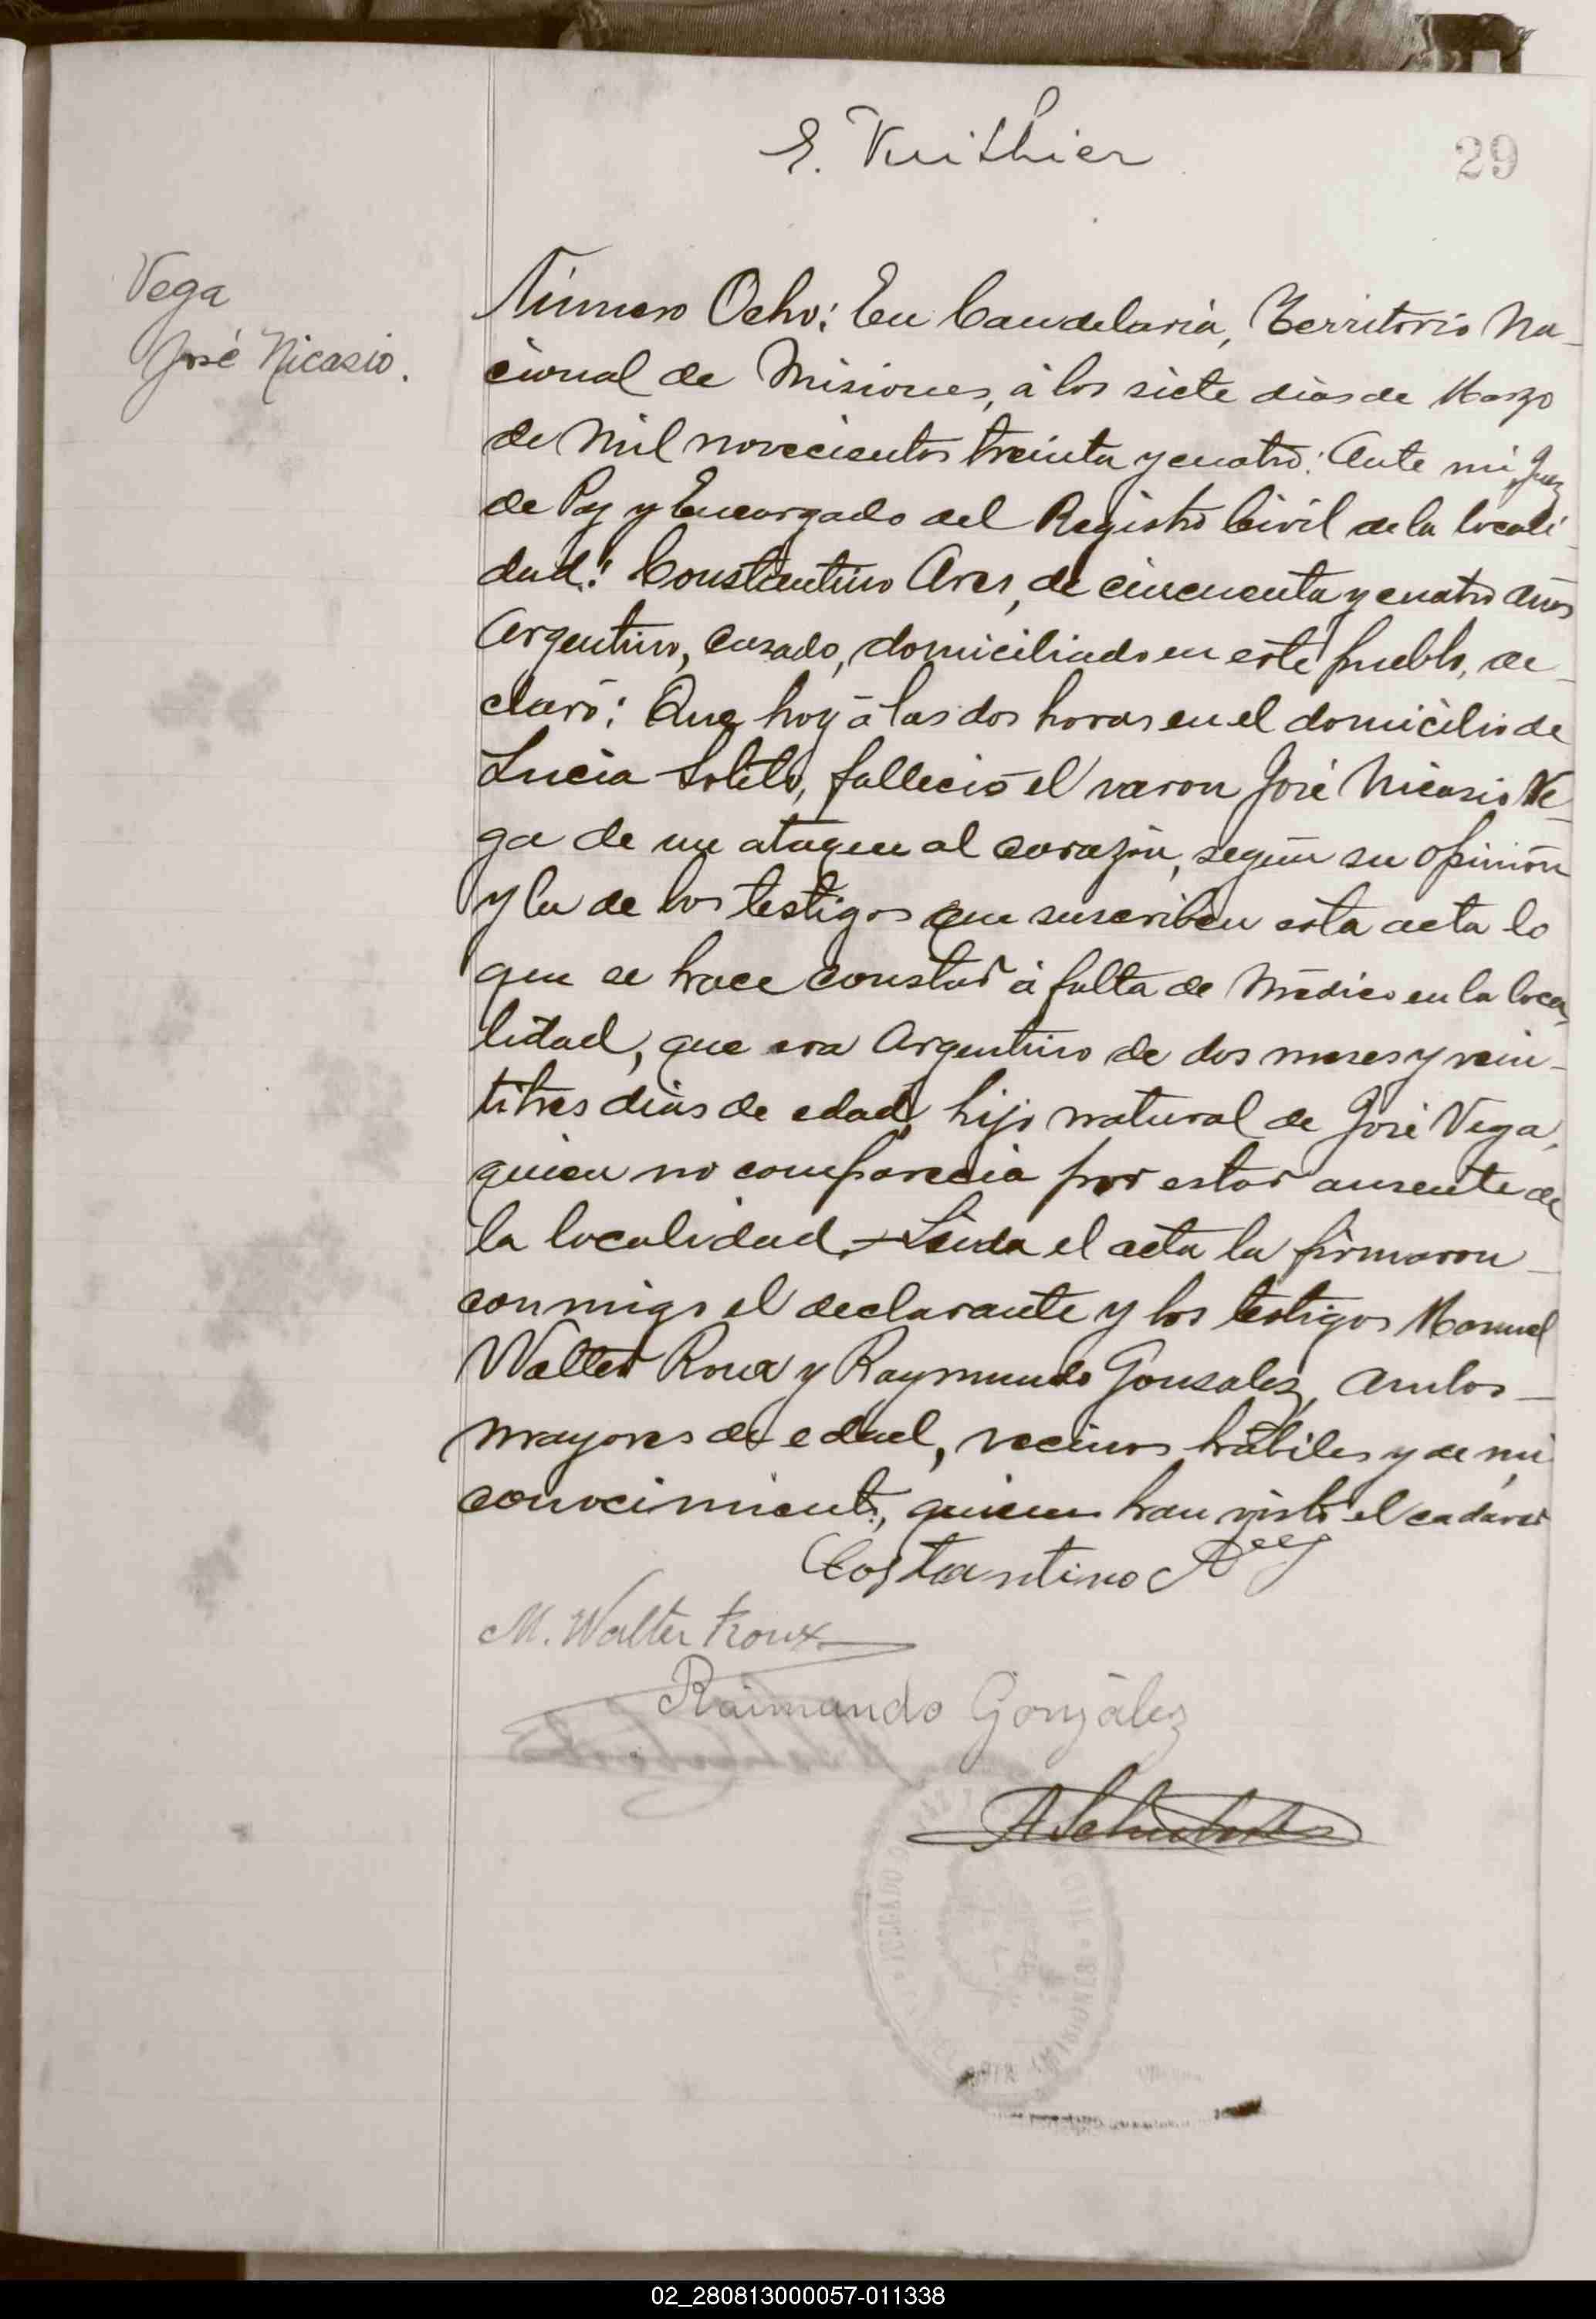 E. Vuithier
29
Vega
José Nicasio.
Número Ocho: En Candelaria, Territorio Na-
cional de Misiones, á los siete dias de Marzo
de Mil novecientos treinta y cuatro: Ante mi, Juez
de Paz y Encargado del Registro Civil de la locali-
dad: Constantino Ares, de cincuenta y cuatro años
Argentino, Casado, domiciliado en este pueblo, de-
claró: Que hoy á las dos horas en el domicilio de
Lucia Sotelo, falleció el varon José Nicasio Ve-
ga de un ataque al corazón, según su opinión
y la de los testigos que suscriben esta acta lo
que se hace constar á falta de Médico en la loca-
lidad, que era Argentino de dos meses y vein-
titres dias de edad, hijo natural de José Vega,
quien no comparecia por estar ausente de
la localidad.- Leida el acta la firmaron
conmigo el declarante y los testigos Manuel
Walter Roux y Raymundo Gonsalez, Ambos
mayores de edad, vecinos hábiles y de mi
conocimiento, quienes han visto el cadáver
Costantino
M. Walter Roux
Raimundo González
A Schubert
JUZGADO MISIONES
02_280813000057-011338